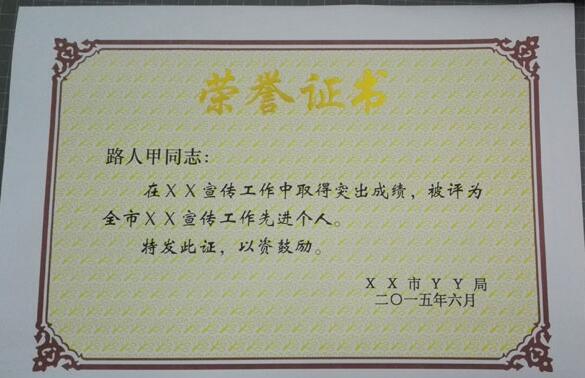 荣誉证书
路人甲同志：
在ＸＸ宣传工作中取得突出成绩，被评为
全市ＸＸ宣传工作先进个人。
特发此证，以资鼓励。
ＸＸ市ＹＹ局
二〇一五年六月